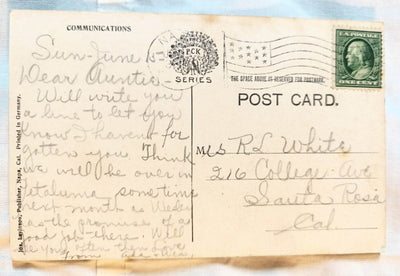 COMMUNICATIONS
Sun-June
Dear Auntie
Will write you
a line to let you
know I havent for
gotten you. Think
we will be over in
Petaluma sometime
next month as Wesley
has the promise of a
good job there. Will
see you often then Love
from
Jos. Levinson, Publisher, Napa, Cal. Printed in Germany.
NA
PCK
SERIES
THE SPACE ABOVE IS RESERVED FOR POSTMARK.
POST CARD.
U.S. POSTAGE
ONE CENT
Mrs R L White
216 College Ave
Santa Rosa
Cal.